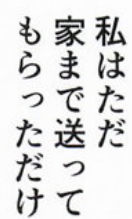 私はただ
家まで送って
もらっただけ